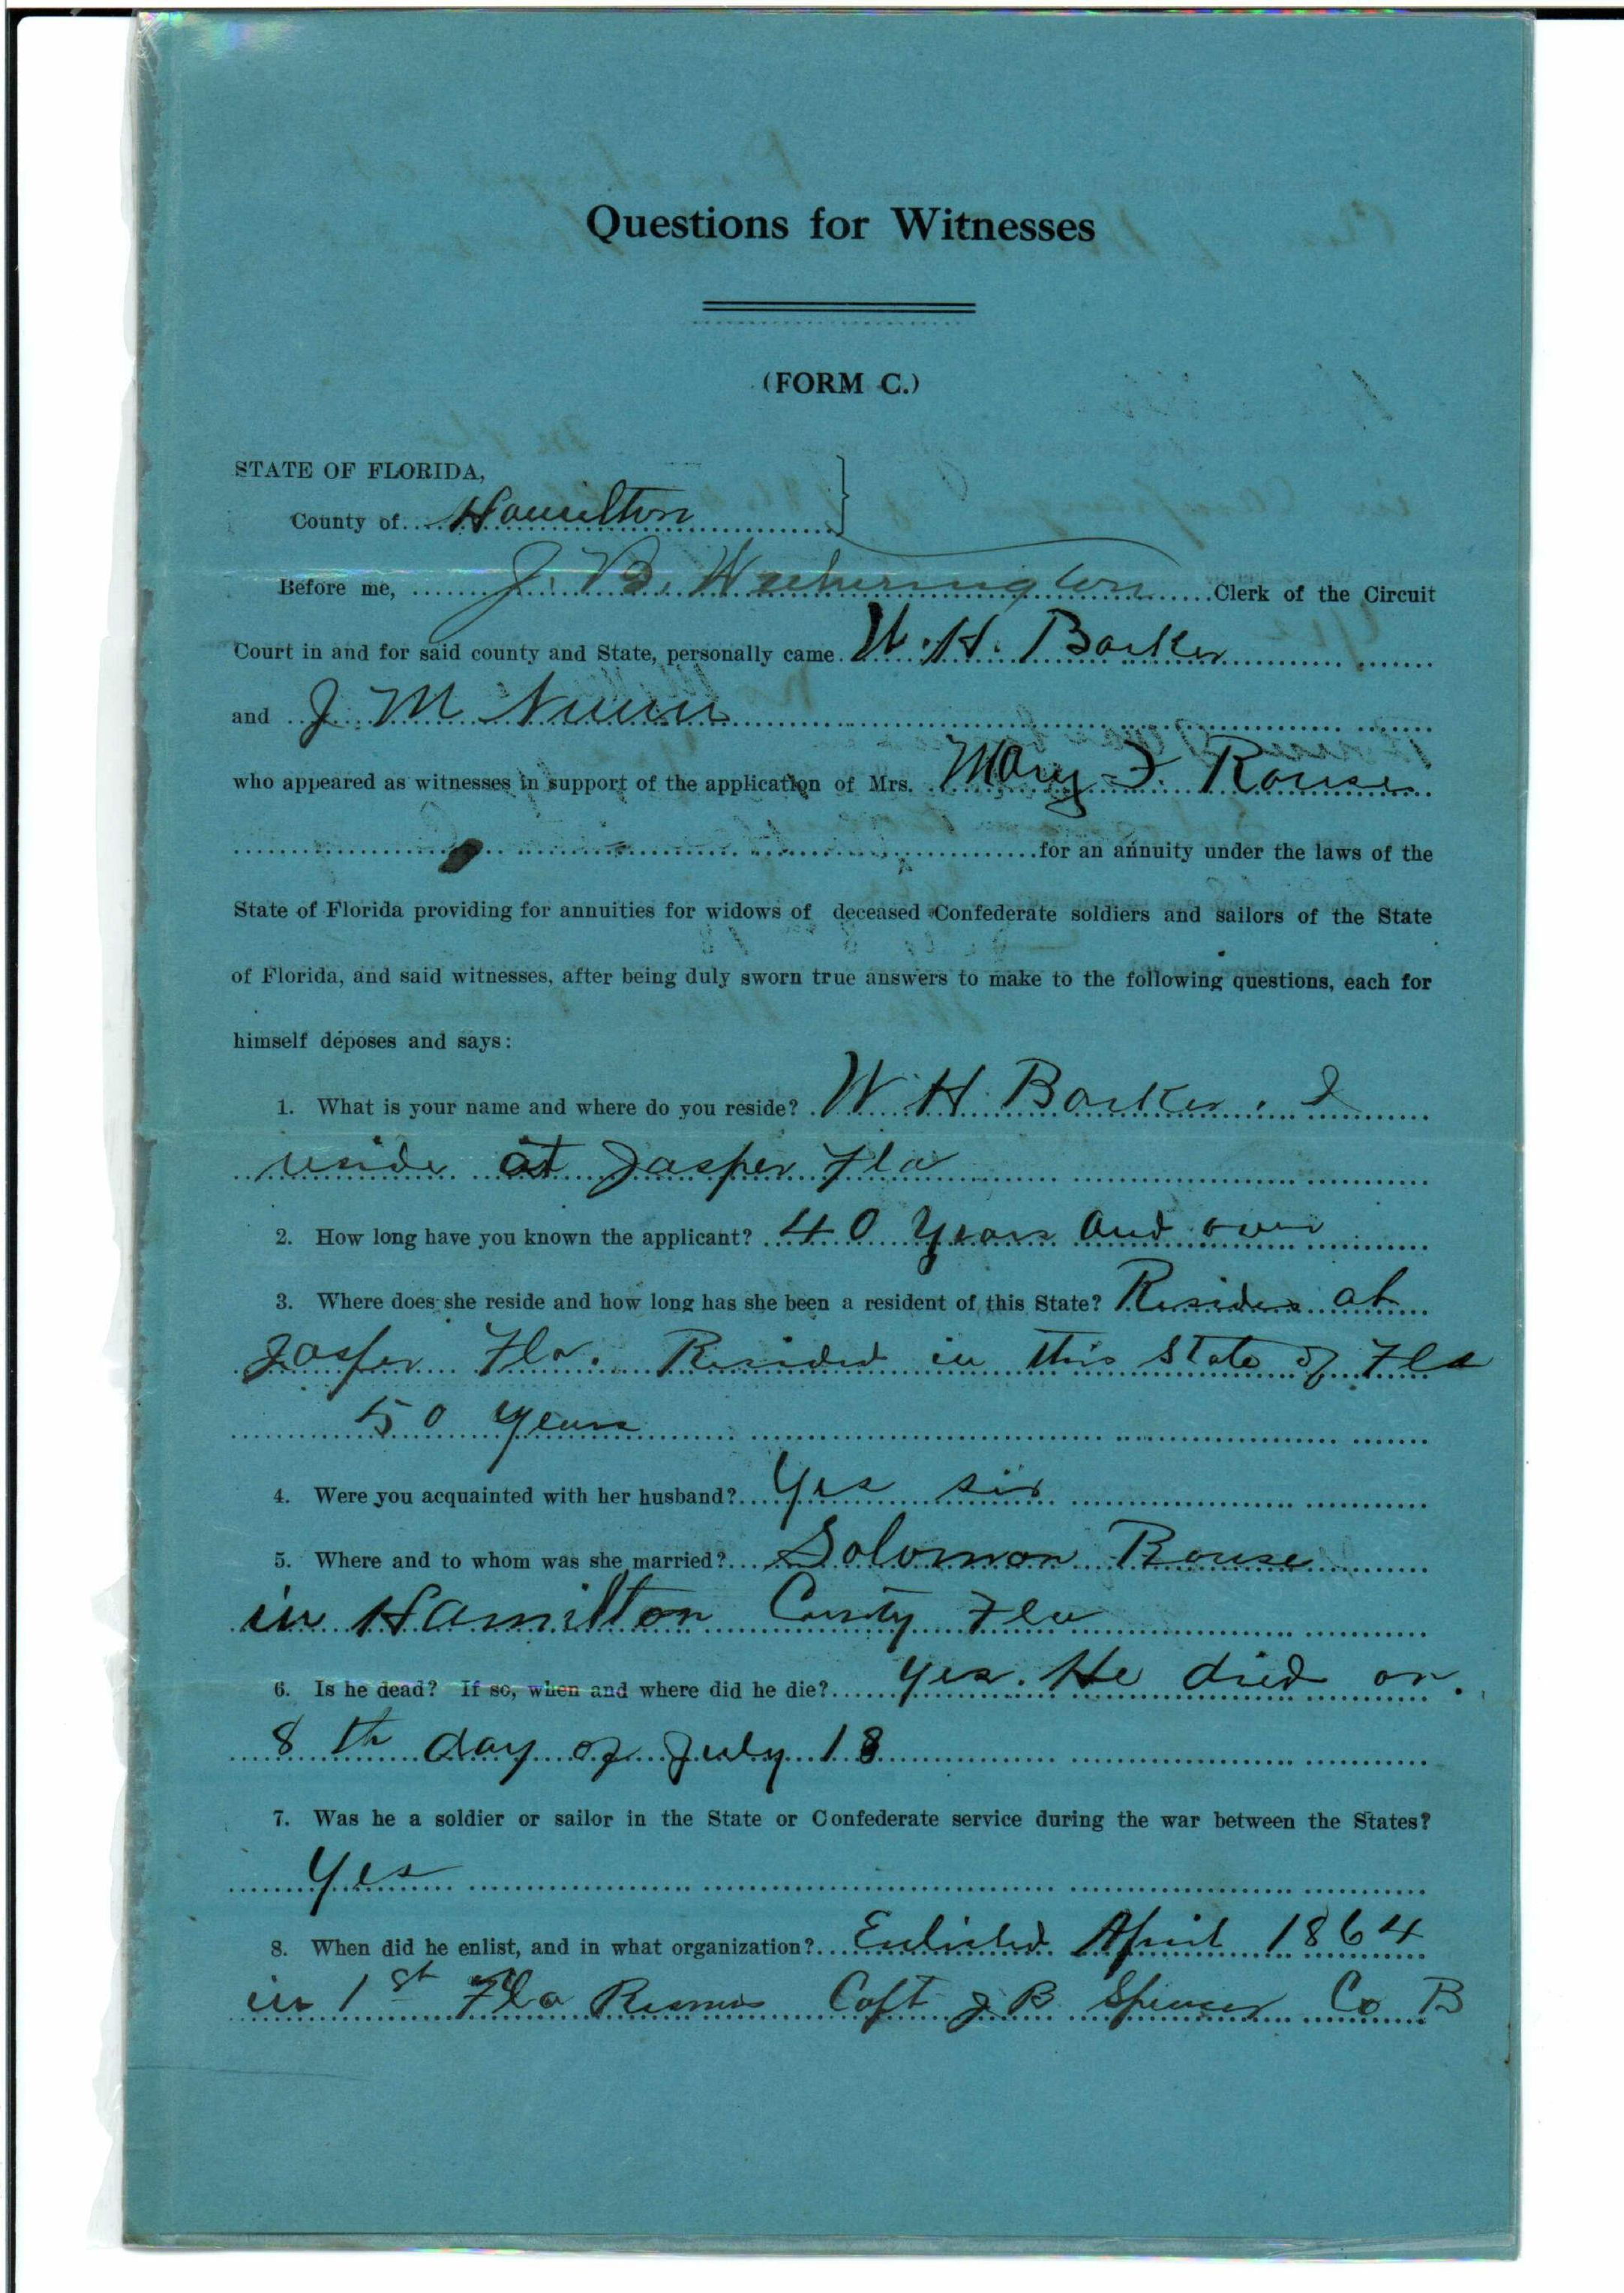 Questions for Witnesses
(FORM C.)
STATE OF FLORIDA,
County of Hamilton
Before me, J. B. Witherington Clerk of the Circuit
Court in and for said county and State, personally came W. H. Barker
and J. M
who appeared as witnesses in support of the application of Mrs. Mary F. Rouse
for an annuity under the laws of the
State of Florida providing for annuities for widows of deceased Confederate soldiers and sailors of the State
of Florida, and said witnesses, after being duly sworn true answers to make to the following questions, each for
himself deposes and says:
1. What is your name and where do you reside? W H Barker. I
reside at Jasper Fla
2. How long have you known the applicant? 40 Years and over
3. Where does she reside and how long has she been a resident of this State? Resides at
Jasper Fla. Resided in this State of Fla
50 years
4. Were you acquainted with her husband? Yes sir
5. Where and to whom was she married? Solomon Rouse
in Hamilton County Fla
6. Is he dead? If so, when and where did he die? yes. He died on.
8th day of July 18
7. Was he a soldier or sailor in the State or Confederate service during the war between the States?
Yes
8. When did he enlist, and in what organization? Enlisted April 1864
in 1st Fla Capt J B Spencer Co B